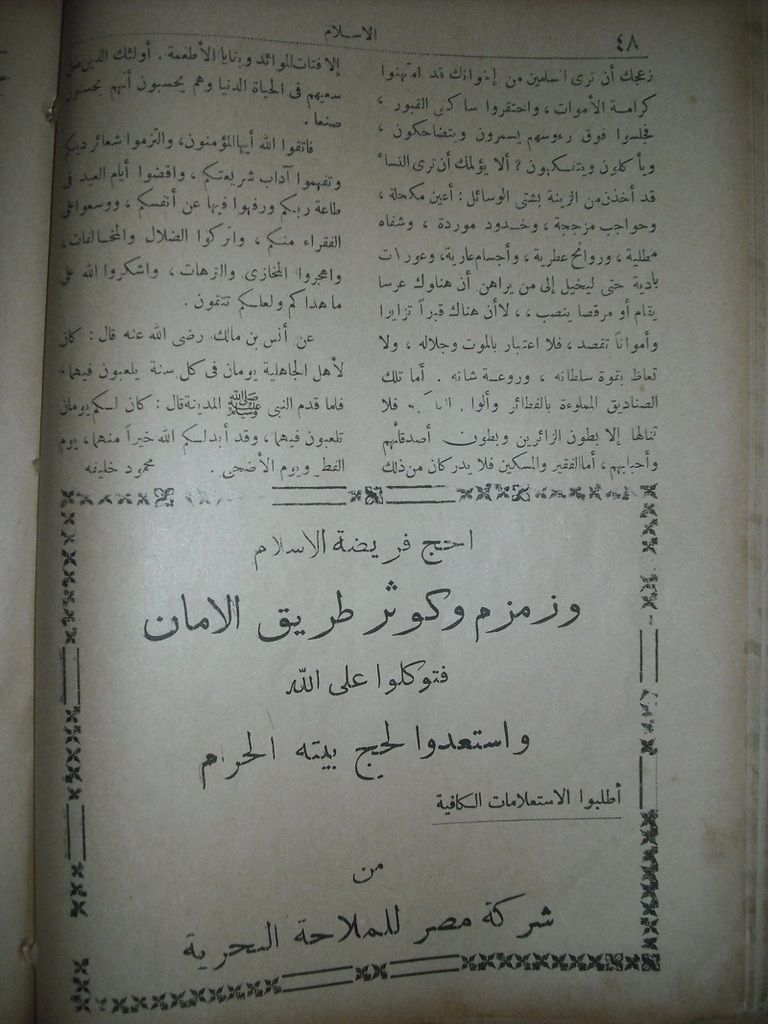 ٤٨
الاسلام
زعجك أن ترى المسلمين من إخوانك قد امتهنوا
كرامة الأموات ، واحتقروا ساكنى القبور ،
فجلسوا فوق رءوسهم يسمرون ويتضاحكون ،
ويأكلون ويتفكهون ؟ ألا يؤلمك أن ترى النساء
قد أخذن من الزينة بشتى الوسائل : أعين مكحلة ،
وحواجب مزججة ، وخدود موردة ، وشفاه
مطلية ، وروائح عطرية ، وأجسام عارية، وعورات
بادية حتى ليخيل إلى من يراهن أن هناك عرسا
يقام أو مرقصا ينصب ، ، لاأن هناك قبراً تزار
وأمواتاً تقصد ، فلا اعتبار بالموت وجلاله ، ولا
تعاظ بقوة سلطانه ، وروعة شأنه . أما تلك
الصناديق المملوءة بالفطائر وألوان فلا
تنالها إلا بطون الزائرين وبطون أصدقائهم
وأحبابهم ، أما الفقير والمسكين فلا يدركان من ذلك
إلا فتات الموائد وبقايا الأطعمة . أولئك الذين ضل
سعيهم فى الحياة الدنيا وهم يحسبون أنهم يحسنون
صنعا .
فاتقوا الله أيها المؤمنون، والتزموا شعائر دينكم
وتفهموا آداب شريعتكم ، واقضوا أيام العيد فى
طاعة ربكم ورفهوا فيها عن أنفسكم ، ووسعوا على
الفقراء منكم ، واتركوا الضلال والمخالفات،
واهجروا المخازى والترهات ، واشكروا الله على
ما هداكم ولعلكم تتقون .
عن أنس بن مالك رضى الله عنه قال : كان
لأهل الجاهلية يومان فى كل سنة يلعبون فيهما،
فلما قدم النبى ﷺ المدينة قال : كان لكم يومان
تلعبون فيهما، وقد أبدلكم الله خيراً منهما، يوم
الفطر ويوم الأضحى . محمود خليفه
احج فريضة الاسلام
وزمزم وكوثر طريق الامان
فتوكلوا على الله
واستعدوا لحج بيته الحرام
أطلبوا الاستعلامات الكافية
من
شركة مصر للملاحة البحرية